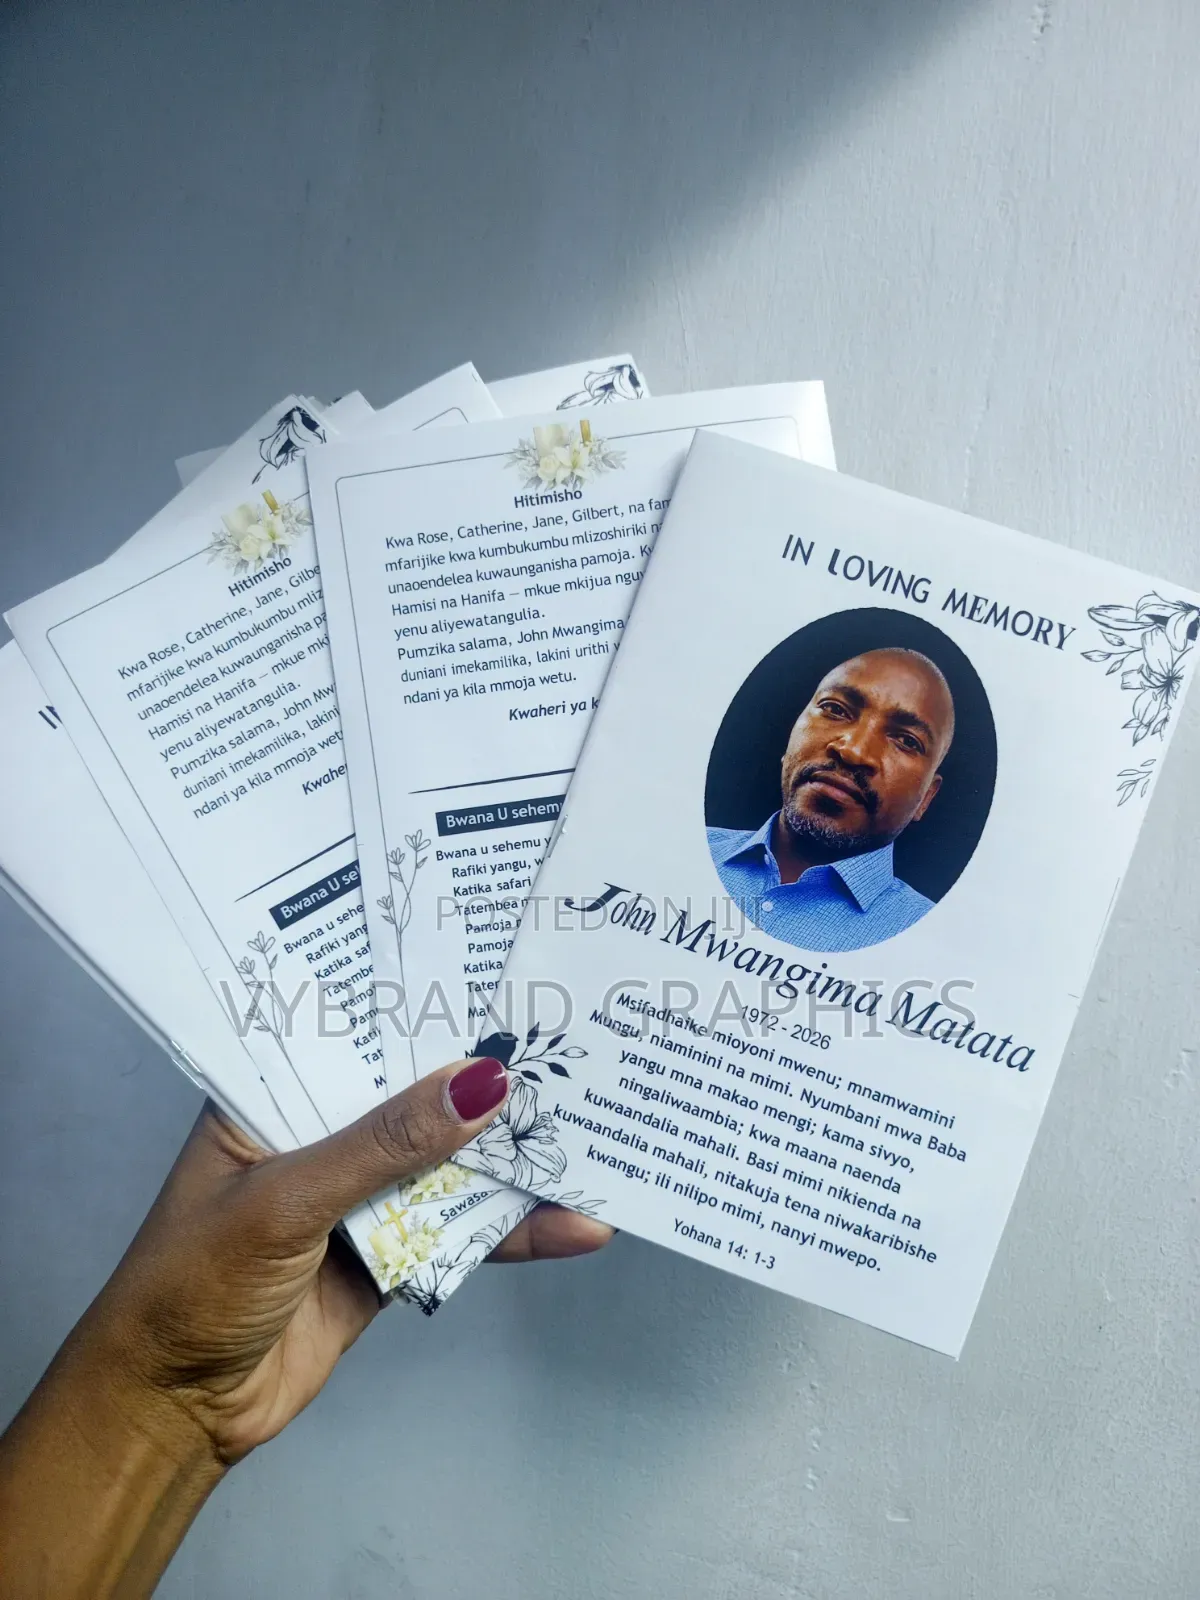 IN LOVING MEMORY
John Mwangima Matata
1972 - 2026
Msifadhaike mioyoni mwenu; mnamwamini
Mungu, niaminini na mimi. Nyumbani mwa Baba
yangu mna makao mengi; kama sivyo,
ningaliwaambia; kwa maana naenda
kuwaandalia mahali. Basi mimi nikienda na
kuwaandalia mahali, nitakuja tena niwakaribishe
kwangu; ili nilipo mimi, nanyi mwepo.
Yohana 14: 1-3
Hitimisho
Kwa Rose, Catherine, Jane, Gilbert, na fam
mfarijike kwa kumbukumbu mlizoshiriki na
unaoendelea kuwaunganisha pamoja. Kw
Hamisi na Hanifa — mkue mkijua nguv
yenu aliyewatangulia.
Pumzika salama, John Mwangima
duniani imekamilika, lakini urithi
ndani ya kila mmoja wetu.
Kwaheri ya k
Bwana U sehemu
Bwana u sehemu y
Rafiki yangu, w
Katika safari
Tatembea n
Pamoja n
Pamoja
Katika
Tater
Mal
Hitimisho
Kwa Rose, Catherine, Jane, Gilbe
mfarijike kwa kumbukumbu mliz
unaoendelea kuwaunganisha pa
Hamisi na Hanifa — mkue mki
yenu aliyewatangulia.
Pumzika salama, John Mw
duniani imekamilika, lakini
ndani ya kila mmoja wet
Kwaher
Bwana U se
Bwana u sehe
Rafiki yang
Katika saf
Tatembe
Pamo
Pam
Kati
Tat
M
Sawasa
POSTED ON JIJI
VYBRAND GRAPHICS